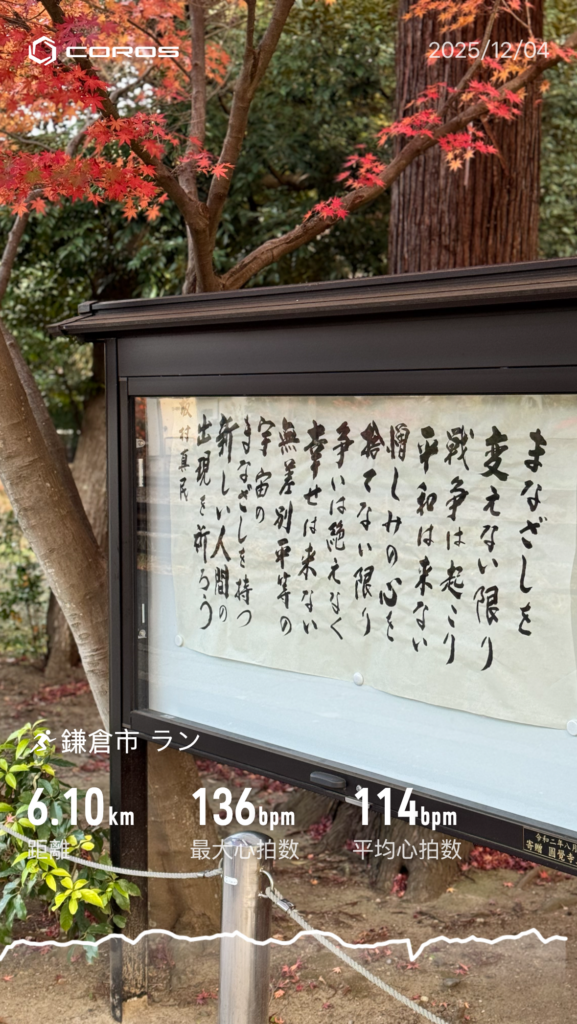 COROS
2025/12/04
まなざしを
変えない限り
戦争は起こり
平和は来ない
憎しみの心を
捨てない限り
争いは絶えなく
幸せは来ない
無差別平等の
宇宙の
まなざしを持つ
新しい人間の
出現を祈ろう
坂村真民
鎌倉市 ラン
6.10km
136bpm
114bpm
距離
最大心拍数
平均心拍数
令和二年八月
寄贈 圓覺寺